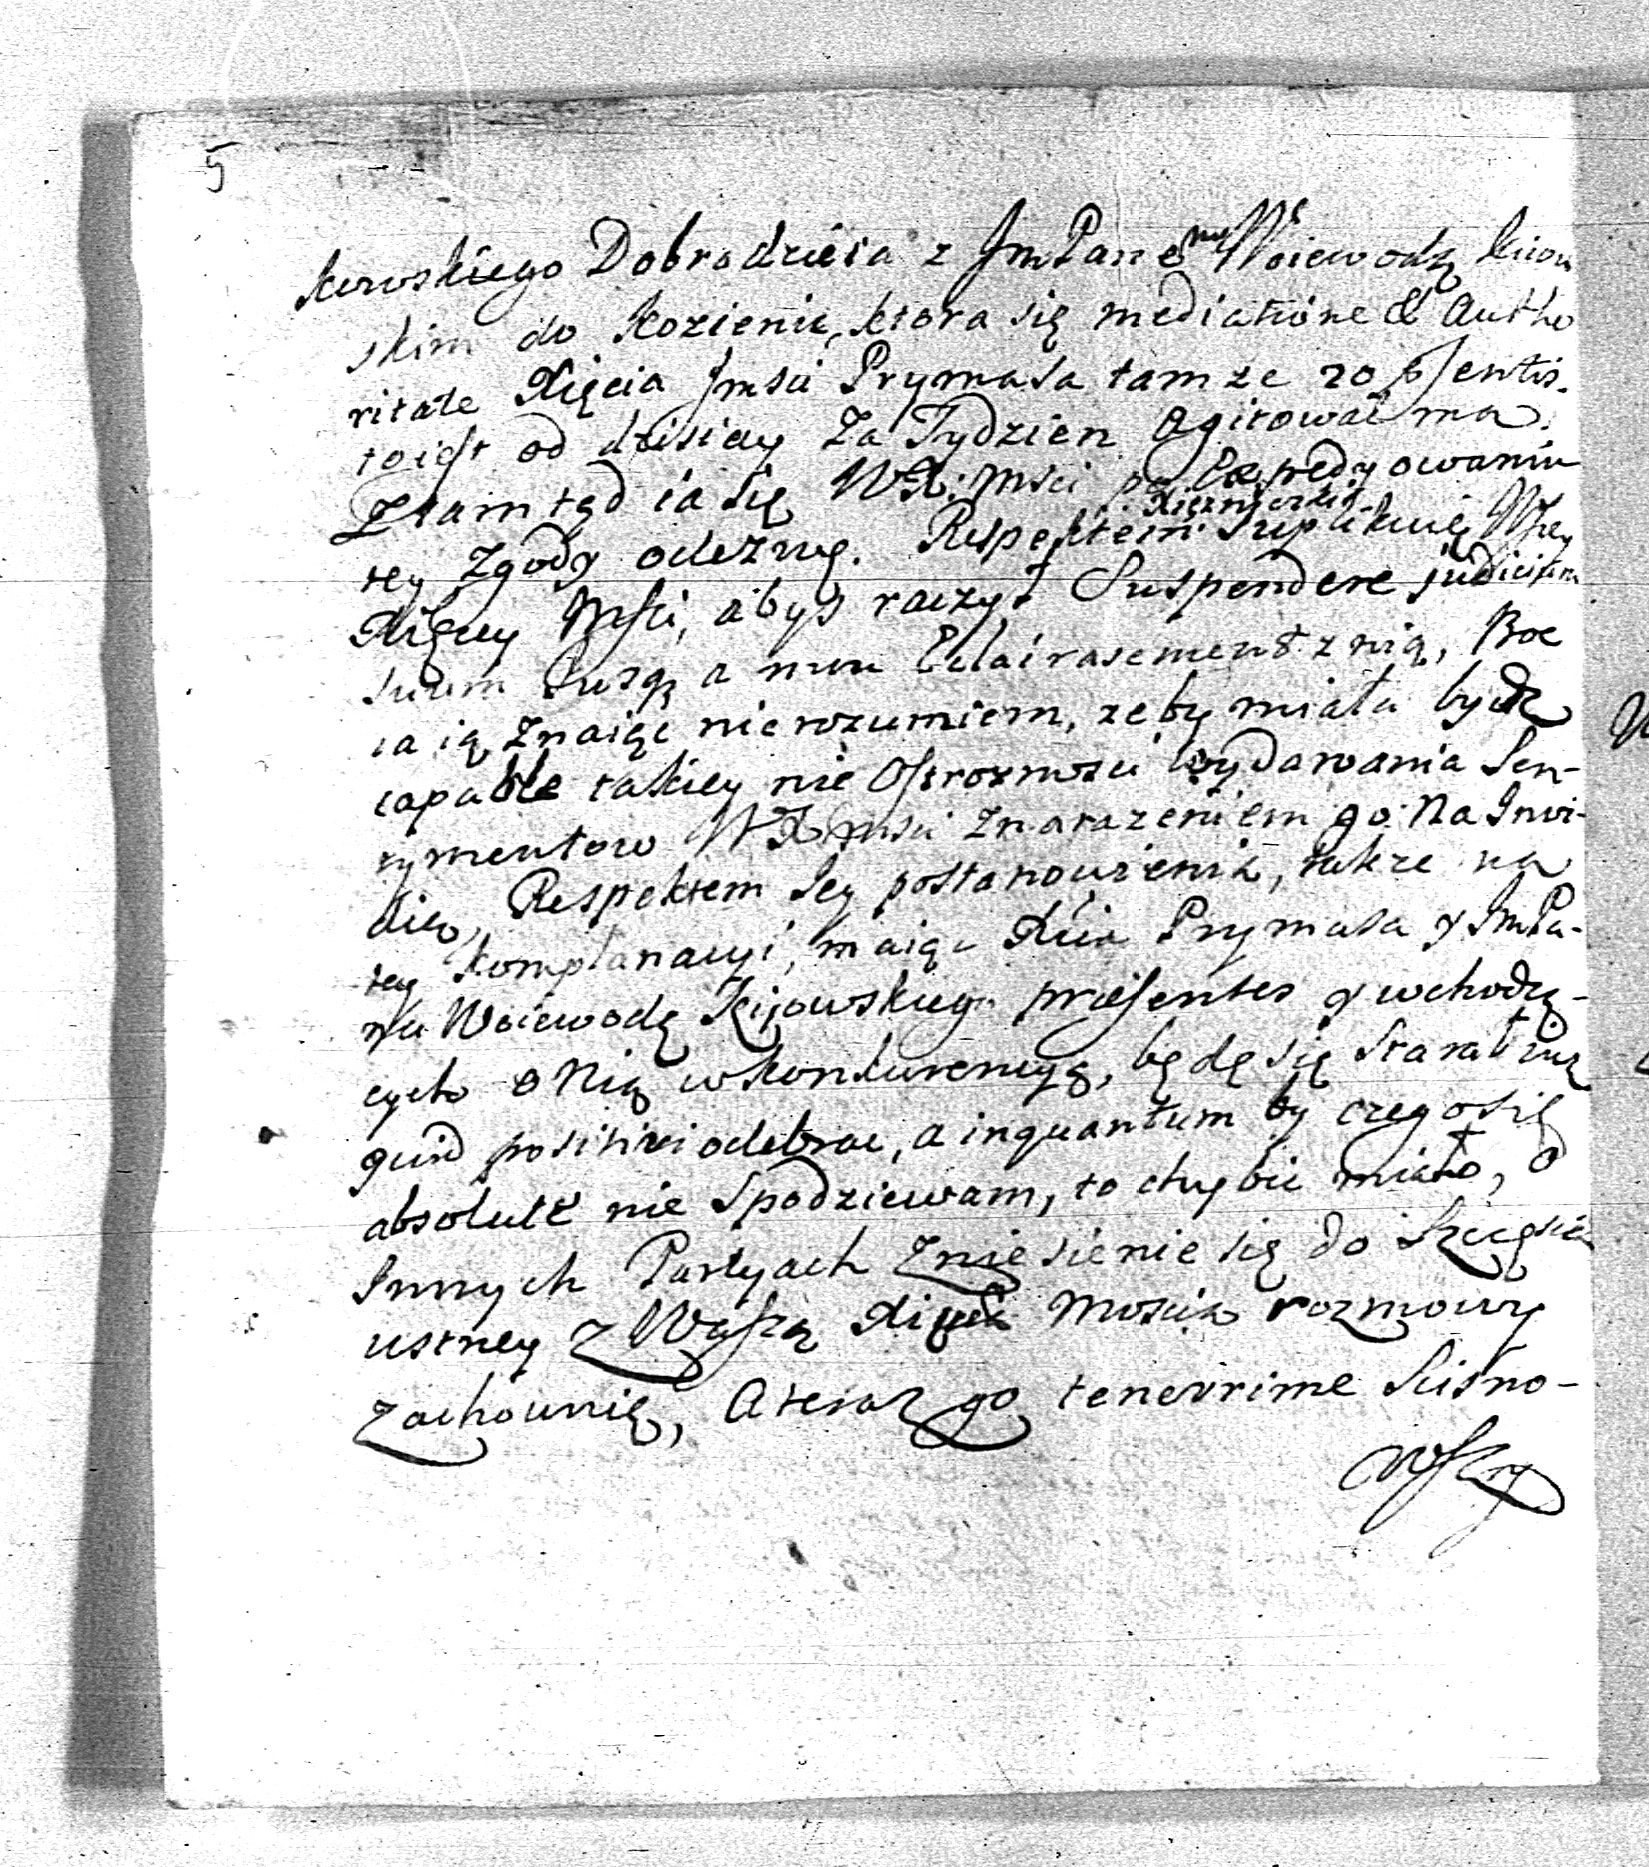 5
kowskiego Dobrodzieia z JmPanem Woiewodą Kiow
skim do Kozienic, ktora się mediatione & Autho
ritate Xięcia Jmści Prymasa tamze 20 psentis.
toiest od dzisiay za Tydzien agitować ma.
Ztamtąd ia się WX: Mści po Expedyowaniu
tey Zgody odezwę. Respektem Xięzniczki Suplikuię Wszey
Xiącey Mści, abyś raczył Suspendere judicium
suum Suszą a mon Eclairasement z nią, Boc
ia ią znaiąc nierozumiem, zeby miała bydz
capable takiey nie Ostroznosci wydawania Sen-
tymentow WXMsci Znarazeniem go Na Inwi-
dią, Respektem Jey postanowienia, także na
tey komplanacyi, maiąc Xcia Prymasa y JmPa-
na Woiewodę Kijowskiego præsentes y wchodzą-
cych o Nią wkonkurencyą, będę się Starał
quid positivi odebrac, a inquantum by czegosię
absolute nie Spodziewam, to chybic miało, o
Innych Partyach Zniesienie się do
ustney z Waszą Mością rozmowy
zachownię, A teraz go tenerrime Scisno-
wszy